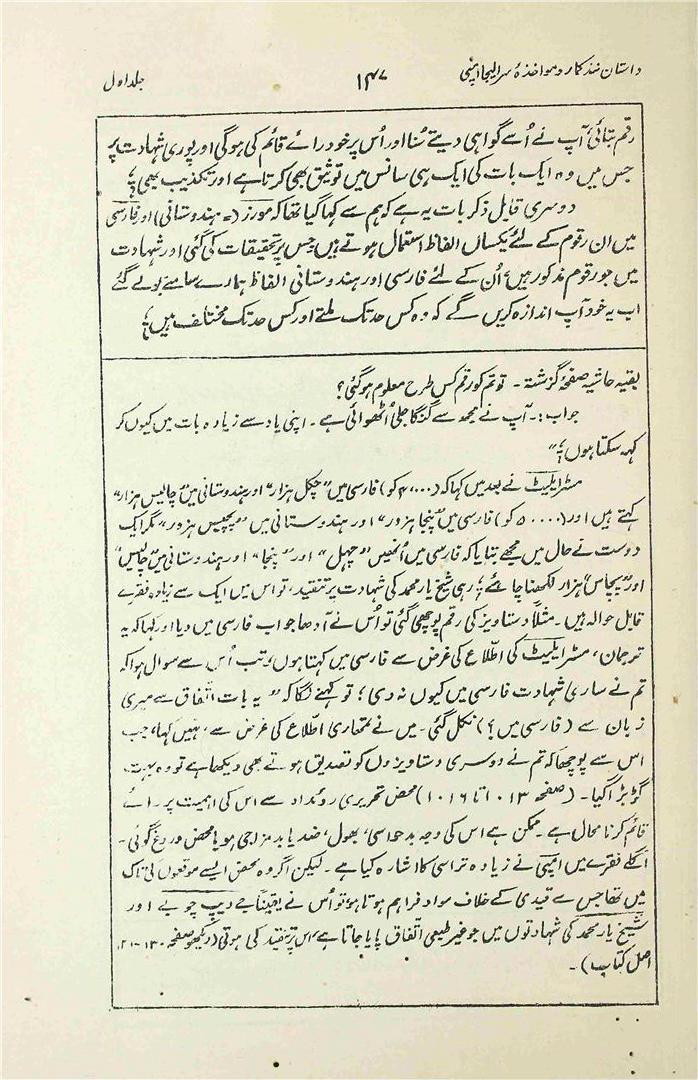 داستان نندکمار و مواخذۂ سر الیجا امپی ۱۴۷ جلد اول
رقم بتائی آپ نے اُسے گواہی دیتے سُنا اور اُس پر خود رائے قائم کی ہوگی اور پوری شہادت پر
جس میں وہ ایک بات کی ایک ہی سانس میں توثیق بھی کرتا ہے اور تکذیب بھی؛
دوسری قابل ذکر بات یہ ہے کہ ہم سے کہا گیا تھا کہ مورز (= ہندوستانی) اور فارسی
میں ان رقوم کے لئے یکساں الفاظ استعمال ہوتے ہیں جس پر تحقیقات کی گئی اور شہادت
میں جو رقوم مذکور ہیں، اُن کے لئے فارسی اور ہندوستانی الفاظ ہمارے سامنے بولے گئے
اب یہ خود آپ اندازہ کریں گے کہ وہ کس حد تک ملتے اور کس حد تک مختلف ہیں؛
بقیہ حاشیہ صفحۂ گزشتہ۔ تو تم کو رقم کس طرح معلوم ہوگئی؟
جواب:۔ آپ نے مجھ سے گنگا جلی اُٹھوائی ہے۔ اپنی یاد سے زیادہ بات میں کیوں کر
کہہ سکتا ہوں؛"
مسٹر ایلیٹ نے بعد میں کہا کہ (۴۰،۰۰۰ کو) فارسی میں "چکل ہزار" اور ہندوستانی میں "چالیس ہزار"
کہتے ہیں اور (۵۰۰۰۰ کو) فارسی میں "پنجا ہزور" اور ہندوستانی میں "پچیس ہزور" مگر ایک
دوست نے حال میں مجھے بتایا کہ فارسی میں اُنھیں "چہل" اور "پنجا" اور ہندوستانی میں "چالیس"
اور "پچاس" ہزار لکھنا چاہئے؛ رہی شیخ یار محمد کی شہادت پر تنقید، تو اس میں ایک سے زیادہ فقرے
قابل حوالہ ہیں۔ مثلاً دستاویز کی رقم پوچھی گئی تو اُس نے آدھا جواب فارسی میں دیا اور کہا کہ یہ
ترجمان، مسٹر ایلیٹ کی اطّلاع کی غرض سے فارسی میں کہتا ہوں، تب اُس سے سوال ہوا کہ
تم نے ساری شہادت فارسی میں کیوں نہ دی؛ تو کہنے لگا کہ "یہ بات اتّفاق سے میری
زبان سے (فارسی میں؟) نکل گئی۔ میں نے تمھاری اطّلاع کی غرض سے، نہیں کہا، جب
اس سے پوچھا کہ تم نے دوسری دستاویزوں کو تصدیق ہوتے بھی دیکھا ہے تو وہ بہت
گڑبڑا گیا۔ (صفحہ ۱۰۱۳ تا ۱۰۱۶) محض تحریری روئداد سے اس کی اہمیت پر رائے
قائم کرنا محال ہے۔ ممکن ہے اس کی وجہ بدحواسی، بھول، ضد یا بدمزاجی ہو یا محض دروغ گوئی۔
اگلے فقرے میں امپی نے زیادہ تر اسی کا اشارہ کیا ہے۔ لیکن اگر وہ محض ایسے موقعوں کی تاک
میں تھا جس سے قیدی کے خلاف مواد فراہم ہوتا ہو تو اُس نے یقیناً جے دیپ چوبے اور
شیخ یار محمد کی شہادتوں میں جو غیر طبیعی اتّفاق پایا جاتا ہے، اس پر تنقید کی ہوتی (دیکھو صفحہ ۱۳۰-۲۱،
اصل کتاب)۔